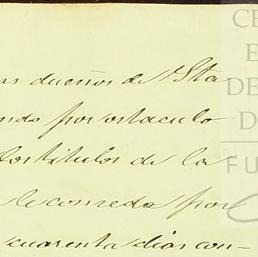 as dueños de Sta
ndo por ostaculo
los titulos de la
le conceda por
cuarenta dias con-
CE
E
DE
D
FU